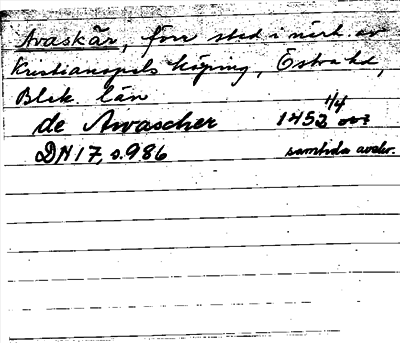 Avaskär, förr stad i närh. av
Kristianopels köping, Östra hd,
Blek. län
de Awascher 1452 4/4 or
DN 17, s. 986 samtida avskr.